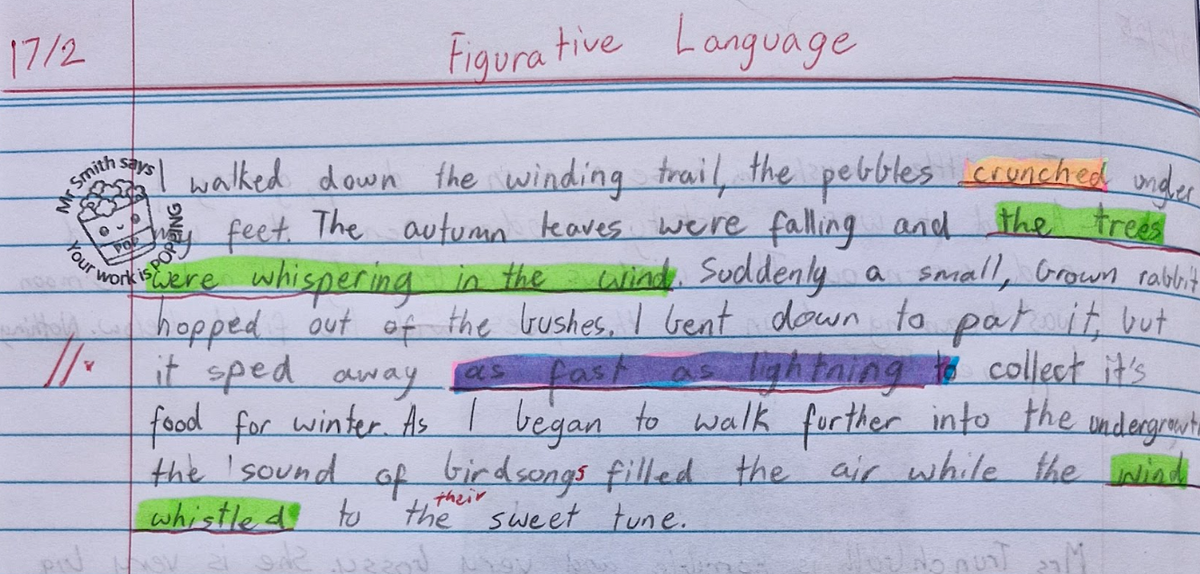 17/2
Figurative Language
Mr Smith says
Your work is POPPING
POP
I walked down the winding trail, the pebbles crunched under
my feet. The autumn leaves were falling and the trees
were whispering in the wind. Suddenly a small, brown rabbit
hopped out of the bushes. I bent down to pat it, but
it sped away as fast as lightning to collect it's
food for winter. As I began to walk further into the undergrowth
the sound of birdsongs filled the air while the wind
their
whistled to the sweet tune.